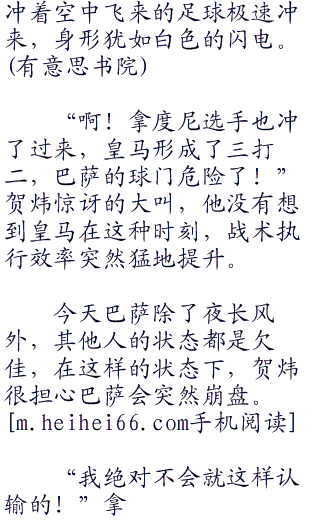 冲着空中飞来的足球极速冲
来，身形犹如白色的闪电。
(有意思书院)
“啊！拿度尼选手也冲
了过来，皇马形成了三打
二，巴萨的球门危险了！”
贺炜惊讶的大叫，他没有想
到皇马在这种时刻，战术执
行效率突然猛地提升。
今天巴萨除了夜长风
外，其他人的状态都是欠
佳，在这样的状态下，贺炜
很担心巴萨会突然崩盘。
[m.heihei66.com手机阅读]
“我绝对不会就这样认
输的！”拿